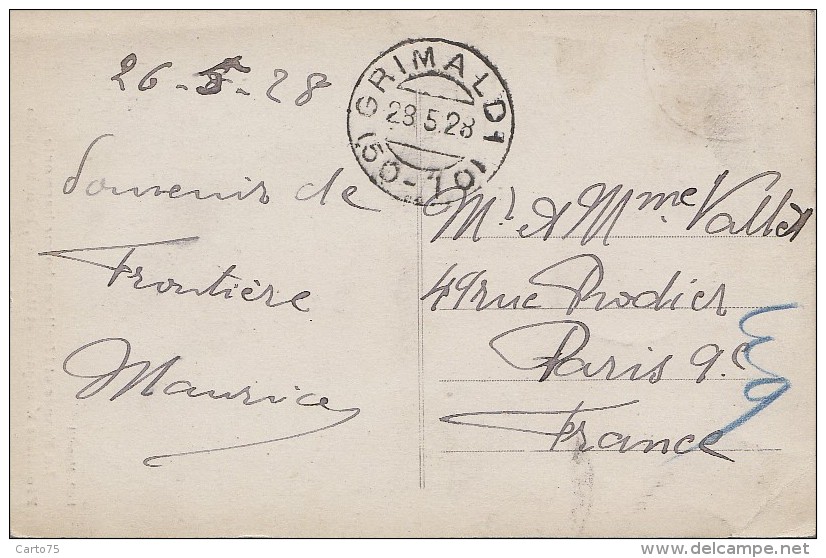 26-5-28
Souvenir de
Frontière
Maurice
GRIMALDI
28.5.28
(50-10)
Mr & Mme Vallet
49 rue Rodier
Paris 9e
France
Carto75
www.delcampe.net